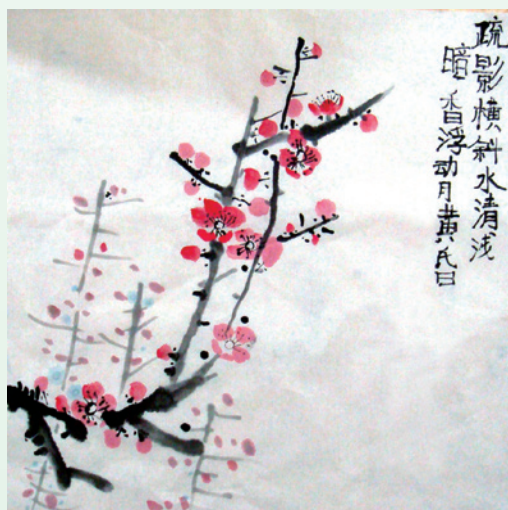 疏影横斜水清浅
暗香浮动月黄氏日